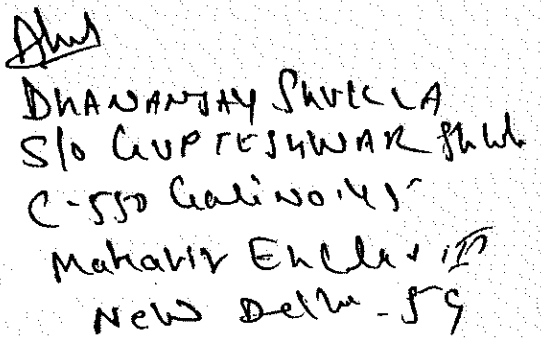 DHANANJAY SHUKLA
S/o GUPTESHWAR Shukla
C-550 Gali No. 45
Mahavir Enclave III
New Delhi - 59